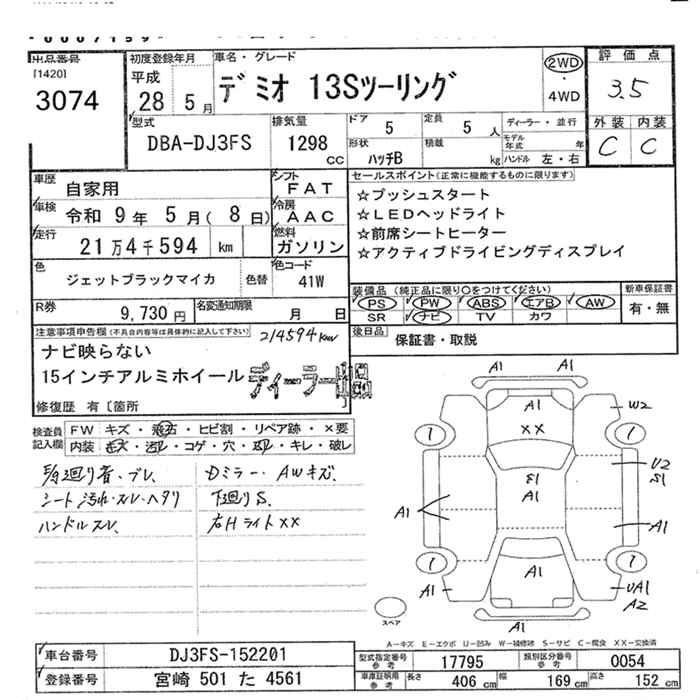 出品番号
[1420]
3074
初度登録年月
平成
28 5月
車名・グレード
デミオ 13Sツーリング
2WD
・
4WD
評価点
3.5
外装 内装
C C
型式
DBA-DJ3FS
排気量
1298
CC
ドア 5
定員 5 人
ディーラー・並行
形状
ハッチB
積載
kg
モデル年式 年
ハンドル 左・右
車歴 自家用
車検 令和 9年 5月( 8日)
走行 21万4千594 km
シフト
FAT
冷房
AAC
燃料
ガソリン
セールスポイント(正常に機能するものに限ります)
☆プッシュスタート
☆LEDヘッドライト
☆前席シートヒーター
☆アクティブドライビングディスプレイ
色
ジェットブラックマイカ
色替
色コード
41W
装備品 (純正品に限り○をつけてください)
PS PW ABS エアB AW
SR ナビ TV カワ
新車保証書
有・無
R券
9,730 円
名変通知期限
月 日
後日品
保証書・取説
注意事項申告欄(不具合内容等は具体的に記入して下さい)
214594km
ナビ映らない
15インチアルミホイール
修復歴 有〔箇所
検査員
記入欄
FW キズ・飛石・ヒビ割・リペア跡・×要
内装 キズ・汚れ・コゲ・穴・スレ・キレ・破レ
シート汚れ・スレ・ヘタリ
ハンドルスレ
Dミラー・AWキズ
下廻りS
右Hライト××
A1 A1
A1
XX
W2
1 1
E1
A1
U2
S1
A1
A1
1 1
A1
A1
UA1
A2
A1
スペア
A-キズ E-エクボ U-凹み W-補修跡 S-サビ C-腐食 XX-交換済
車台番号 DJ3FS-152201
登録番号 宮崎 501 た 4561
型式指定番号
参考
17795
類別区分番号
参考
0054
車庫証明用
参考
長さ 406 cm
幅 169 cm
高さ 152 cm